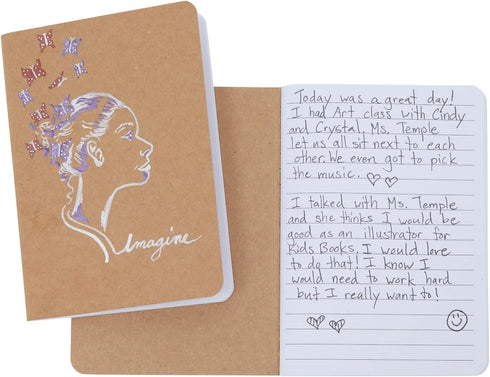 Imagine
Today was a great day!
I had Art class with Cindy
and Crystal. Ms. Temple
let us all sit next to each
other. We even got to pick
the music.
I talked with Ms. Temple
and she thinks I would be
good as an illustrator for
Kids Books. I would love
to do that! I know I
would need to work hard
but I really want to!